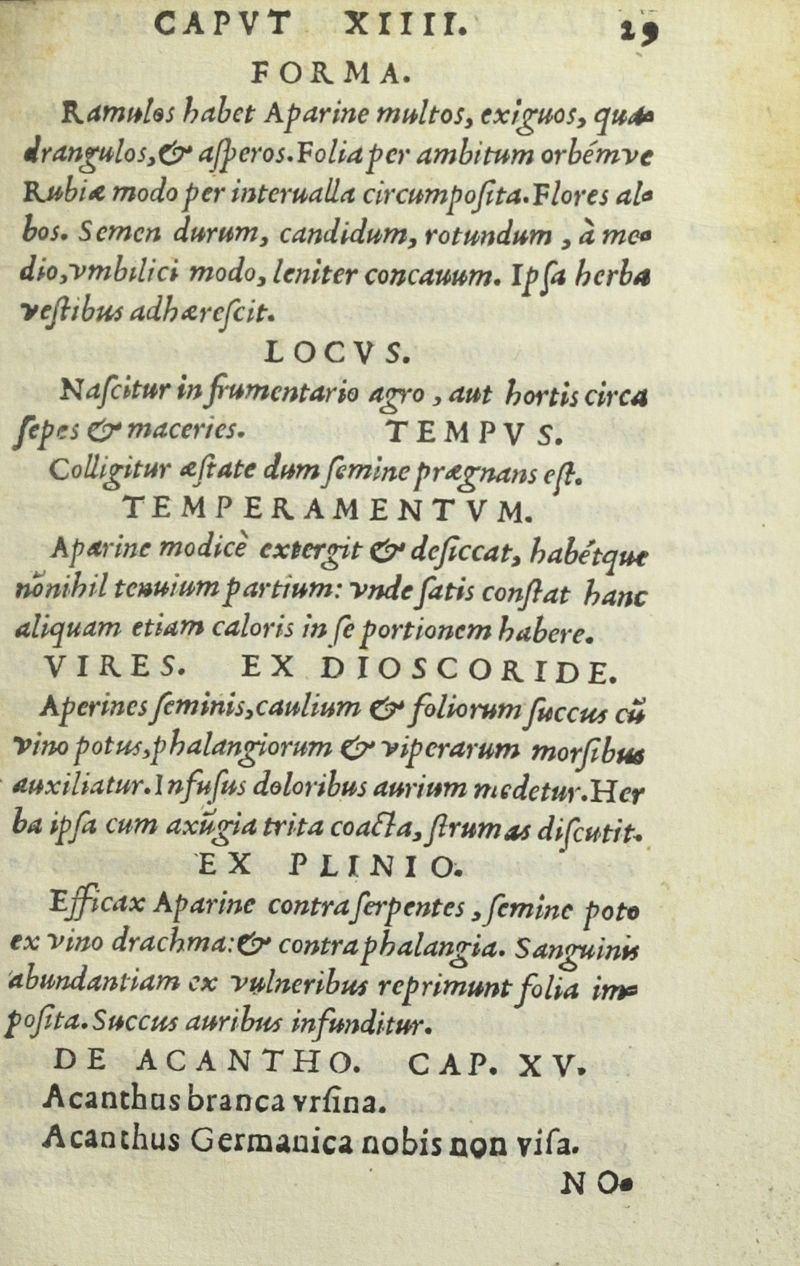 CAPVT XIIII. 29
FORMA.
Ramulos habet Aparine multos, exiguos, qua-
drangulos,& asperos.Folia per ambitum orbémve
Rubiæ modo per interualla circumposita.Flores al-
bos. Semen durum, candidum, rotundum , à me-
dio,vmbilici modo, leniter concauum. Ipsa herba
vestibus adhærescit.
LOCVS.
Nascitur in frumentario agro , aut hortis circa
sepes & maceries. TEMPVS.
Colligitur æstate dum semine prægnans est.
TEMPERAMENTVM.
Aparine modicè extergit & desiccat, habétque
nõnihil tenuium partium: vnde satis constat hanc
aliquam etiam caloris in se portionem habere.
VIRES. EX DIOSCORIDE.
Aperines seminis,caulium & foliorum succus cū
vino potus,phalangiorum & viperarum morsibus
auxiliatur.Infusus doloribus aurium medetur.Her
ba ipsa cum axūgia trita coacta, strumas discutit.
EX PLINIO.
Efficax Aparine contra serpentes , semine poto
ex vino drachma:& contra phalangia. Sanguinis
abundantiam ex vulneribus reprimunt folia im-
posita.Succus auribus infunditur.
DE ACANTHO. CAP. XV.
Acanthus branca vrsina.
Acanthus Germanica nobis non visa.
NO-